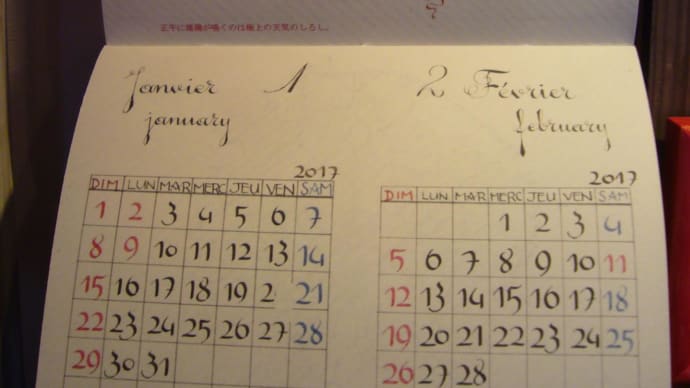 正午に雄鶏が鳴くのは極上の天気のしるし。
Janvier 1
january
2017
DIM LUN MAR MERC JEU VEN SAM
1 2 3 4 5 6 7
8 9 10 11 12 13 14
15 16 17 18 19 2 21
22 23 24 25 26 27 28
29 30 31
2 Février
february
2017
DIM LUN MAR MERC JEU VEN SAM
1 2 3 4
5 6 7 8 9 10 11
12 13 14 15 16 17 18
19 20 21 22 23 24 25
26 27 28